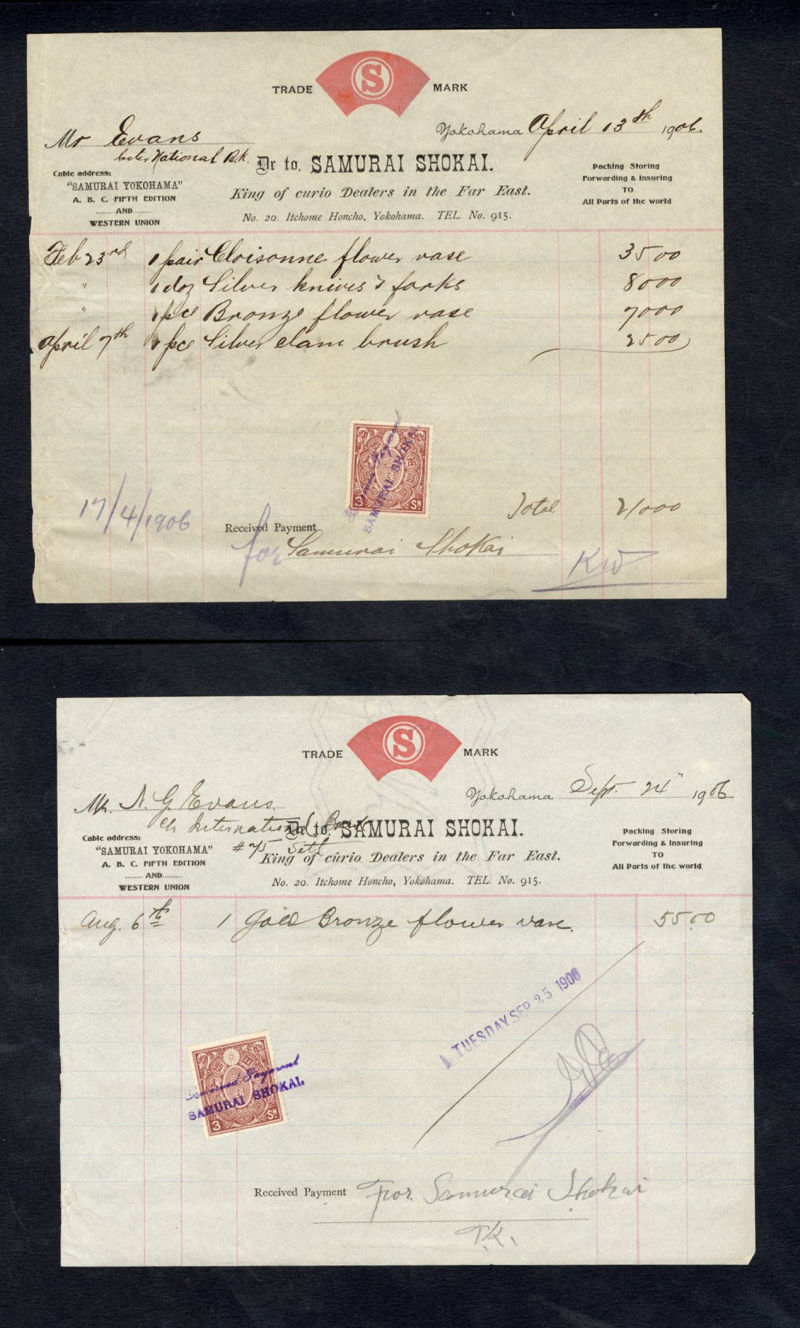 TRADE S MARK
Yokohama April 13th 1906.
Mr Evans
International Bk.
Dr to, SAMURAI SHOKAI.
King of curio Dealers in the Far East.
No. 20. Itchome Honcho, Yokohama. TEL. No. 915.
Cable address:
"SAMURAI YOKOHAMA"
A. B. C. FIFTH EDITION
AND
WESTERN UNION
Packing Storing
Forwarding & Insuring
TO
All Parts of the world
Feb 23rd 1 pair Cloisonne flower vase 3500
" 1 doz Silver knives & forks 8000
" 1 pce Bronze flower vase 7000
April 7th 1 pce Silver clam brush 2500
3 Sn
SAMURAI SHOKAI
Total 21000
17/4/1906
Received Payment
for Samurai Shokai
KW
TRADE S MARK
Yokohama Sept. 24" 1906
Mr. N. G. Evans.
c/o International Bank
#75 Settl
Dr to, SAMURAI SHOKAI.
King of curio Dealers in the Far East.
No. 20. Itchome Honcho, Yokohama. TEL. No. 915.
Cable address:
"SAMURAI YOKOHAMA"
A. B. C. FIFTH EDITION
AND
WESTERN UNION
Packing Storing
Forwarding & Insuring
TO
All Parts of the world
Aug. 6th 1 Gold Bronze flower vase. 5500
TUESDAY SEP 25 1906
3 Sn
Received Payment
SAMURAI SHOKAI
Received Payment For Samurai Shokai
T.K.